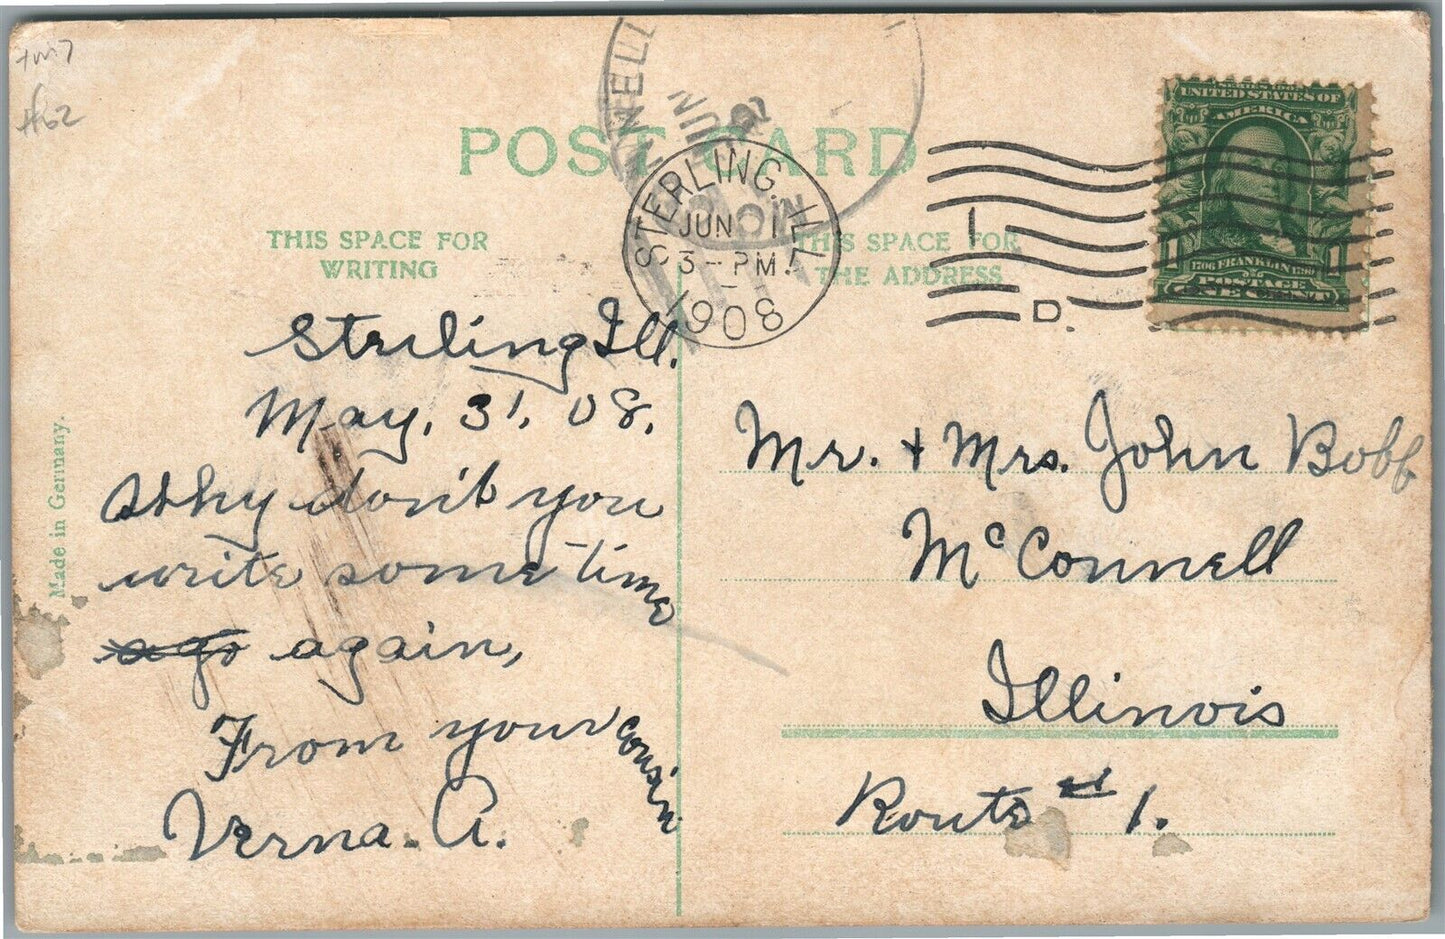 POST CARD
THIS SPACE FOR
WRITING
THIS SPACE FOR
THE ADDRESS
STERLING, ILL.
JUN 1
3-PM
1908
NNELL
JUN
I
D.
SERIES 1902
UNITED STATES OF
AMERICA
1706 FRANKLIN 1790
1 1
POSTAGE
ONE CENT
#62
Made in Germany.
Streling Ill.
May, 31, 08.
Why don't you
write some time
ago again,
From your cousin
Verna. A.
Mr. + Mrs. John Bobb
McConnell
Illinois
Route # 1.